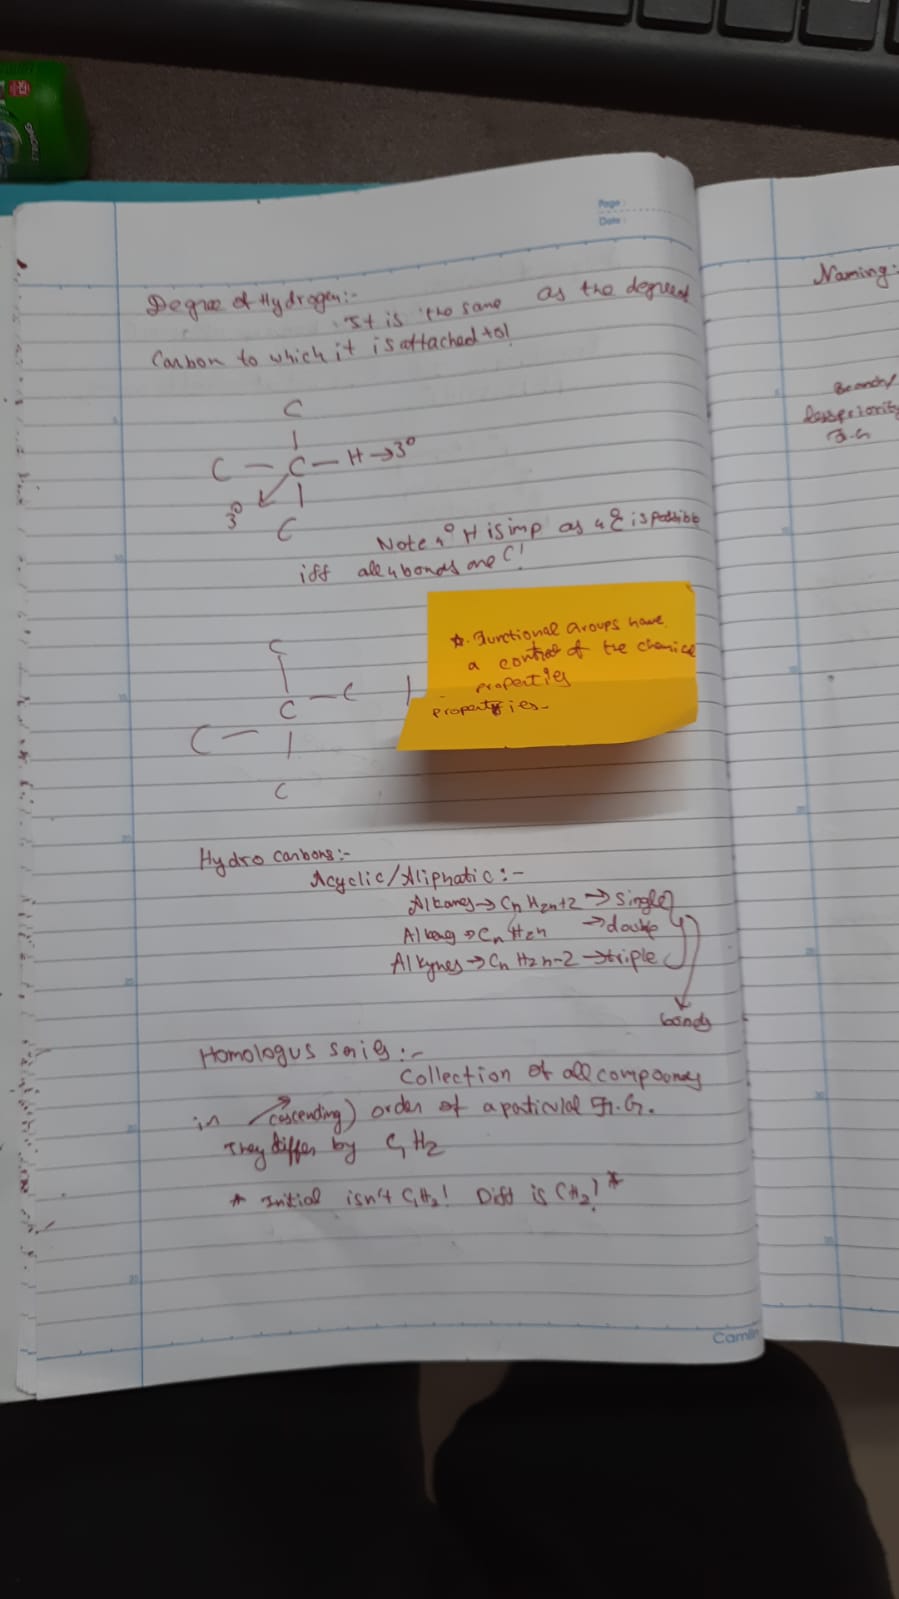 Page:
Date:
Degree of Hydrogen:-
It is the same as the degree of
Carbon to which it is attached to!
C
C — C — H → 3°
3°
C
Note 4° H is imp as 4°C is possible
iff all 4 bonds are C!
C
C — C
C
C
★. Functional Groups have
a control of the chemical
properties
properties-
Hydro carbons:-
Acyclic/Aliphatic:-
Alkanes → CnH2n+2 → single
→ CnH2n → double
Alkynes → CnH2n-2 → triple
bonds
Homologus series:-
Collection of all compounds
in (ascending) order of a paticulal F.G.
They differ by C1H2
* Initial isn't C1H2! Diff is CH2! *
Camlin
Naming:
Branch/
less priority
F.G